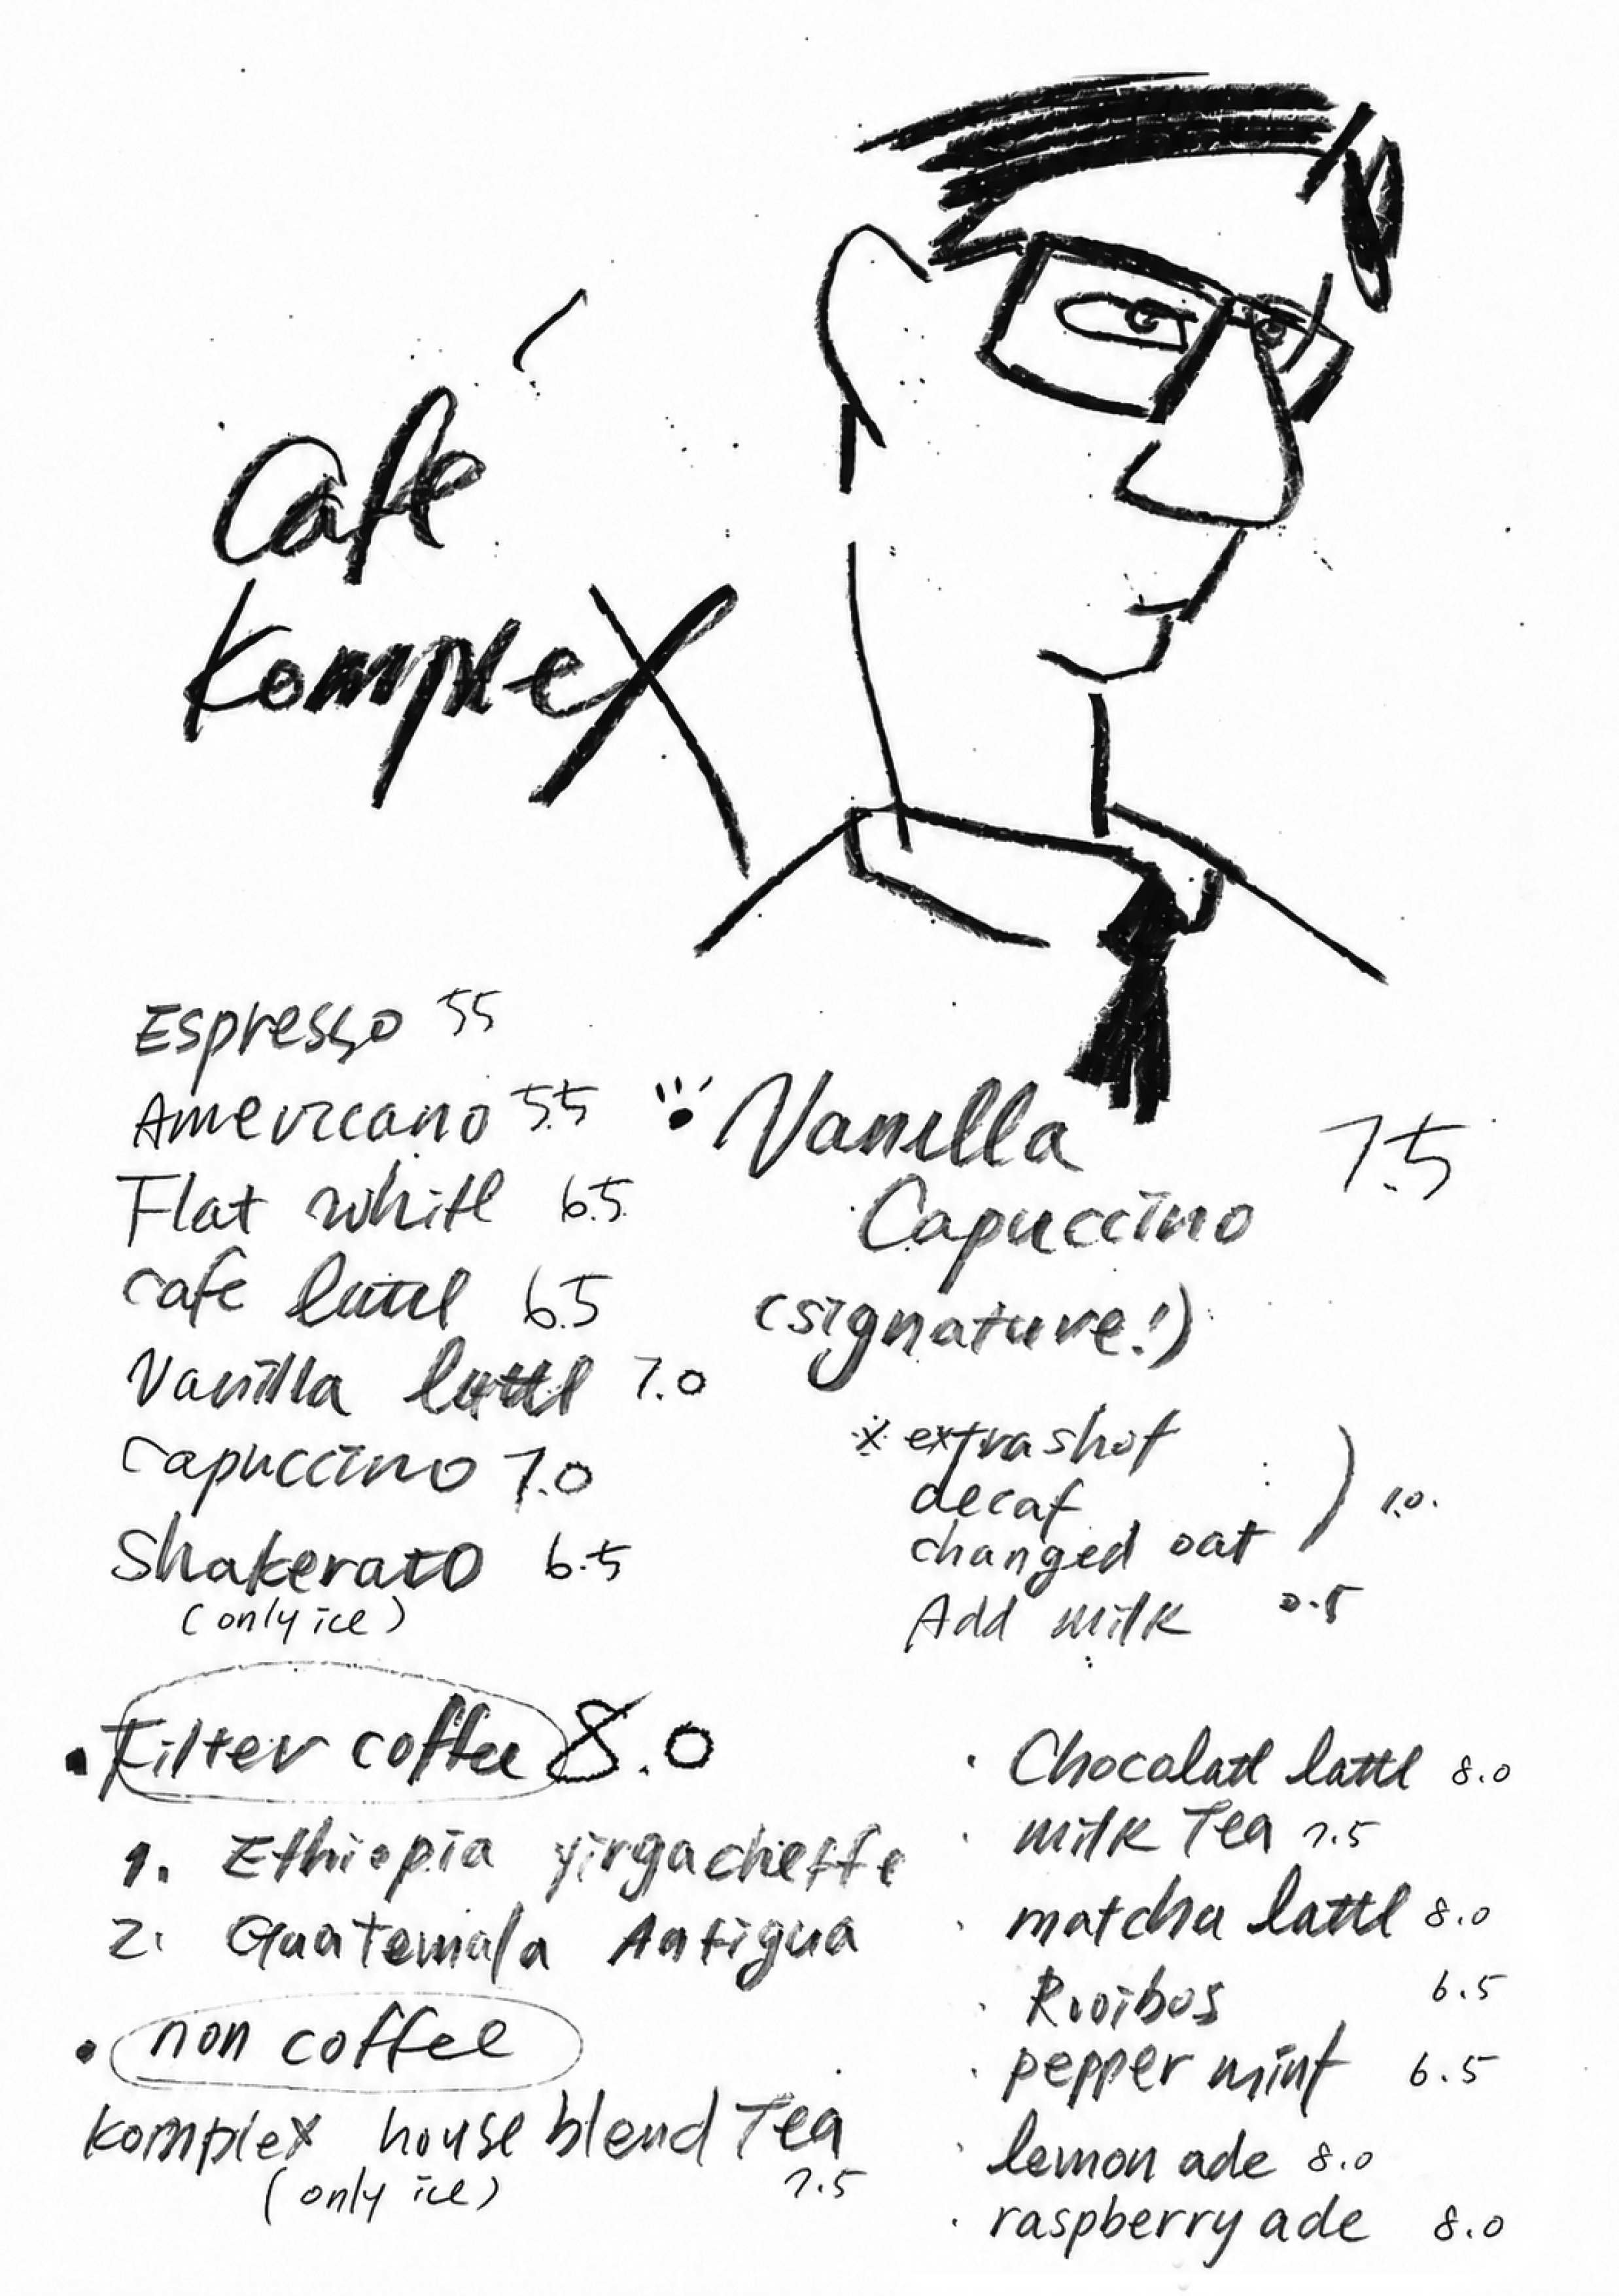 Cafe
Komplex
Espresso 55
Americano 5.5
Flat white 6.5
cafe latte 6.5
Vanilla latte 7.0
Capuccino 7.0
Shakerato 6.5
(only ice)
Vanilla 7.5
Capuccino
(signature!)
※ extra shot
decaf
changed oat ) 1.0.
Add milk 0.5
• Filter coffee 8.0
1. Ethiopia yirgacheffe
2. Guatemala Antigua
• non coffee
Komplex house blend Tea
(only ice) 7.5
· Chocolate latte 8.0
· milk Tea 7.5
· matcha latte 8.0
· Rooibos 6.5
· pepper mint 6.5
· lemon ade 8.0
· raspberry ade 8.0